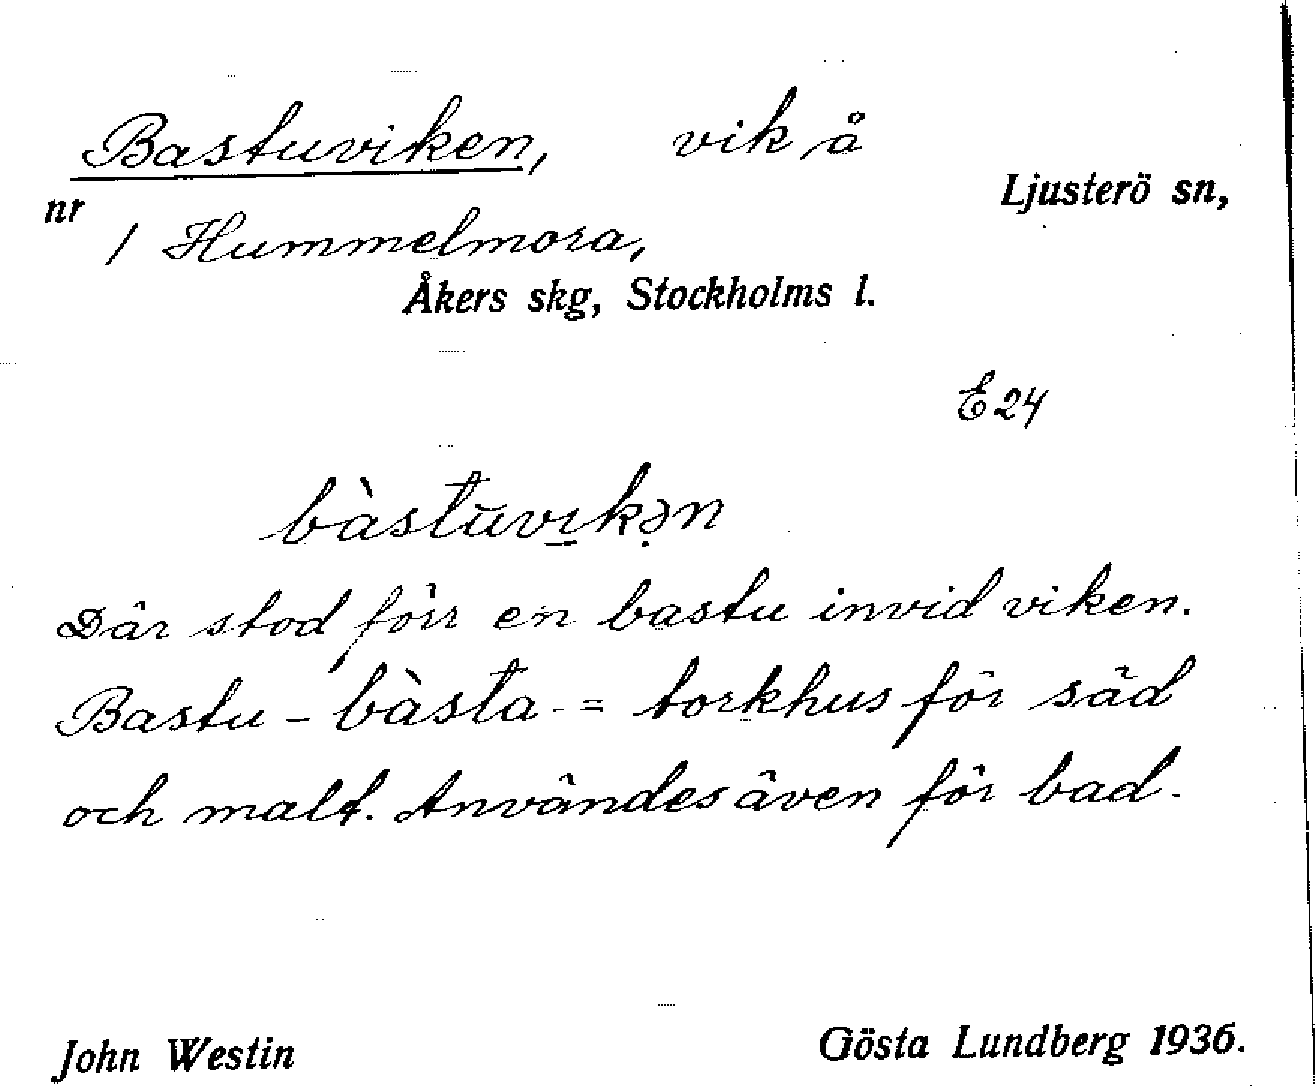 Bastuviken, vik å
Ljusterö sn,
nr 1 Hummelmora,
Åkers skg, Stockholms l.
E 24
bàstuvıkən
Där stod förr en bastu invid viken.
Bastu - bàsta - = torkhus för säd
och malt. Användes även för bad.
John Westin
Gösta Lundberg 1936.